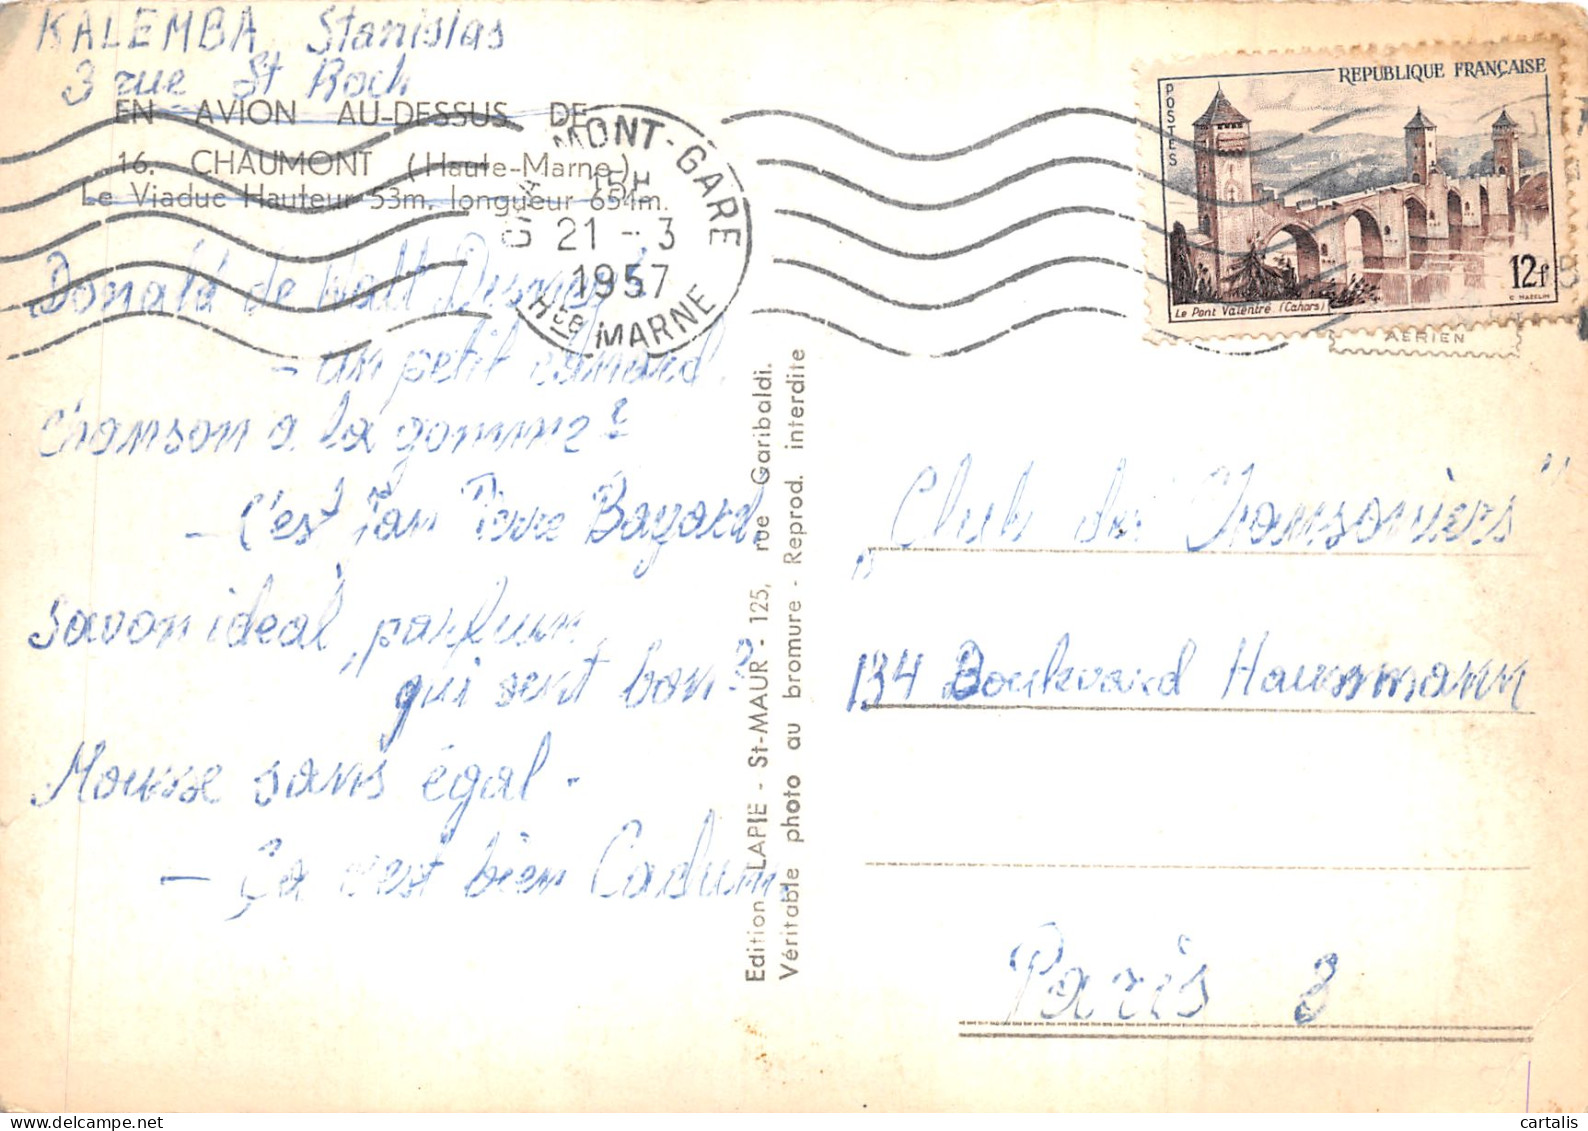 KALEMBA Stanislas
3 rue St Roch
EN AVION AU-DESSUS DE
16. CHAUMONT (Haute-Marne)
Le Viaduc Hauteur 53m. longueur 654m.
MONT-GARE
15H
21 - 3
1957
Hte MARNE
REPUBLIQUE FRANÇAISE
POSTES
12f
C. MAZELIN
Le Pont Valentré (Cahors)
AERIEN
Donald de Walt Disney
- un petit canard.
Chanson a la gomme?
- C'est Jan Pierre Bayard.
Savon idéal, parfum
qui sent bon?
Mousse sans égal -
- Ça c'est bien Cadum.
Edition LAPIE - St-MAUR - 125, rue Garibaldi.
Véritable photo au bromure - Reprod. interdite
"Club des Chansoniers"
134 Boulevard Haussmann
Paris 8
cartalis.com